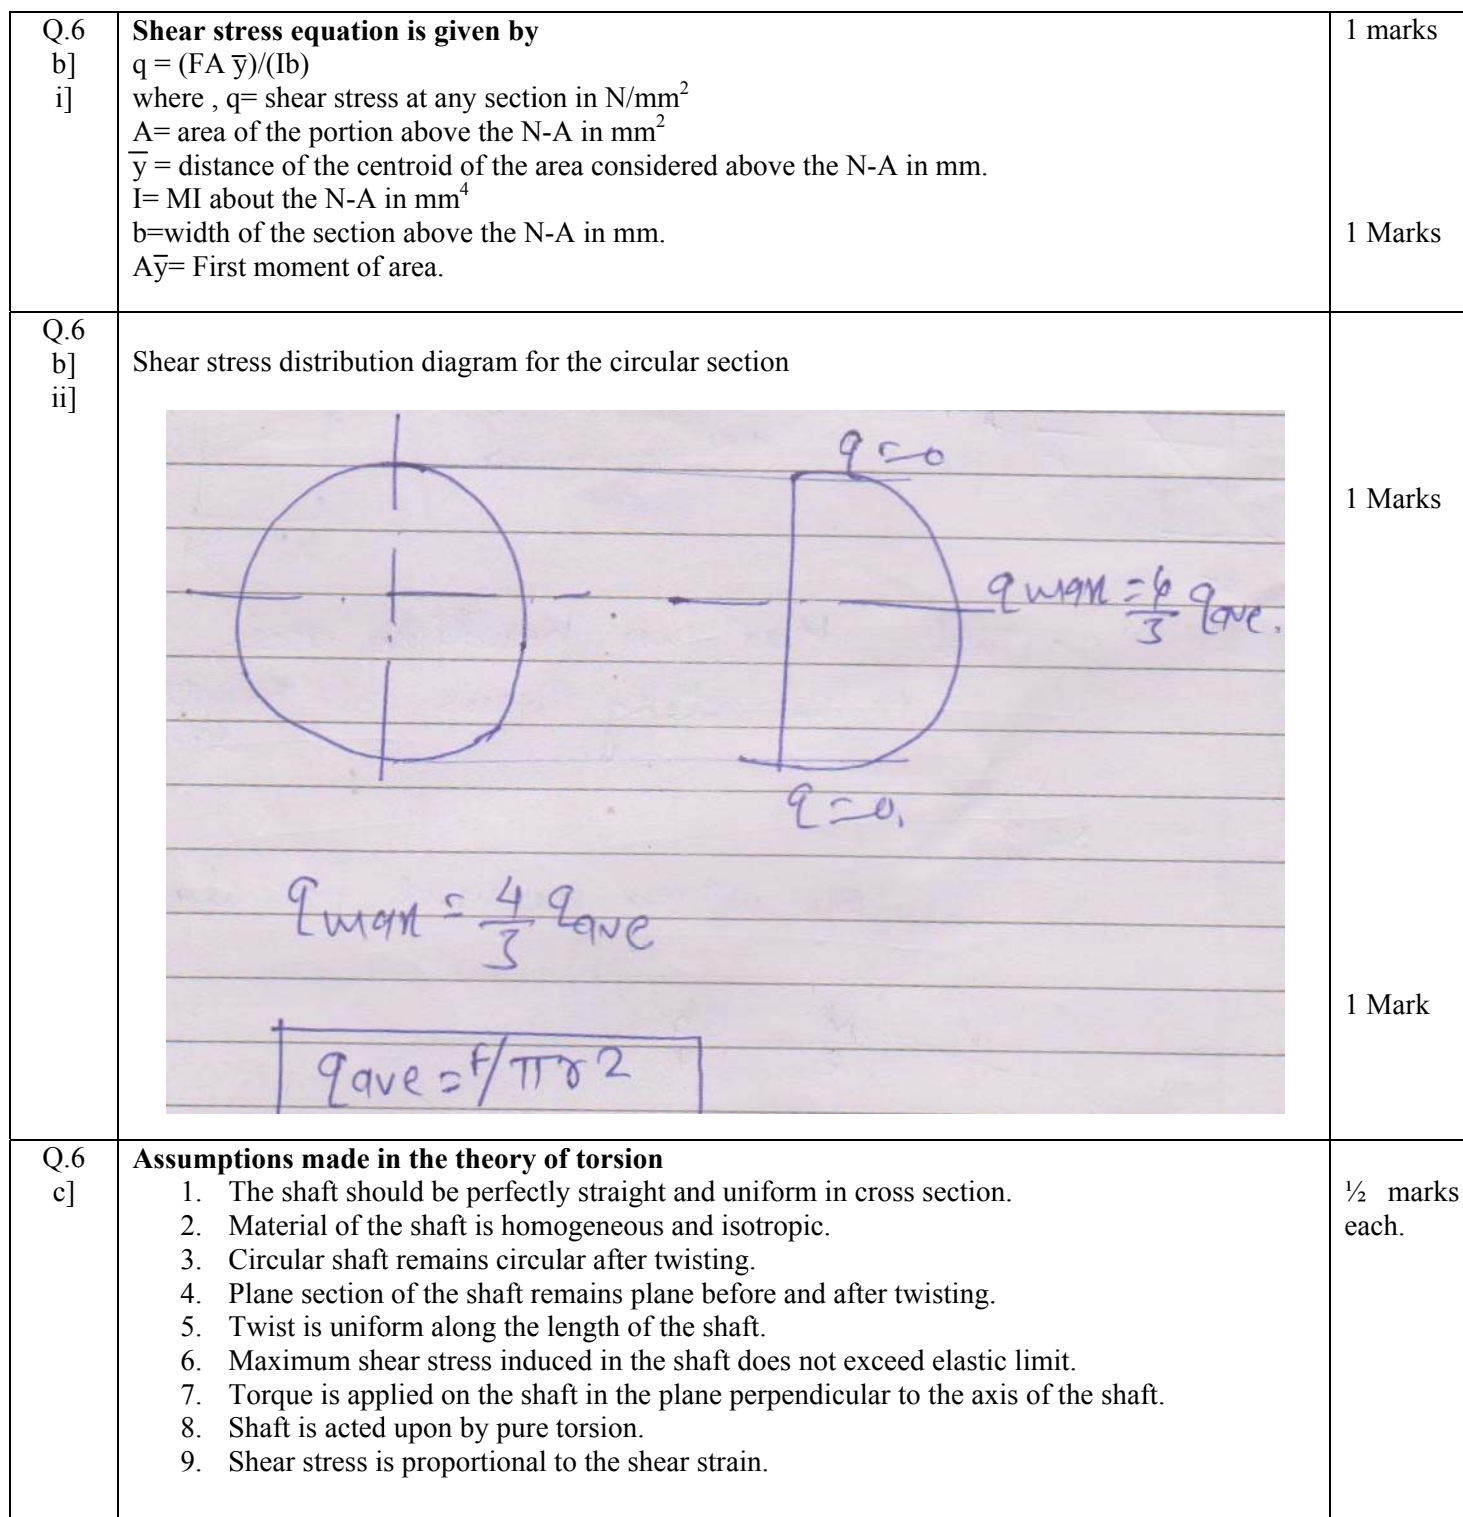 Q.6
b]
i]
Shear stress equation is given by
q = (FA y̅)/(Ib)
where , q= shear stress at any section in N/mm²
A= area of the portion above the N-A in mm²
y̅ = distance of the centroid of the area considered above the N-A in mm.
I= MI about the N-A in mm⁴
b=width of the section above the N-A in mm.
Ay̅= First moment of area.
1 marks
1 Marks
Q.6
b]
ii]
Shear stress distribution diagram for the circular section
q=0
q max = 4/3 qave.
q=0.
q max = 4/3 qave
qave = F/πr2
1 Marks
1 Mark
Q.6
c]
Assumptions made in the theory of torsion
1. The shaft should be perfectly straight and uniform in cross section.
2. Material of the shaft is homogeneous and isotropic.
3. Circular shaft remains circular after twisting.
4. Plane section of the shaft remains plane before and after twisting.
5. Twist is uniform along the length of the shaft.
6. Maximum shear stress induced in the shaft does not exceed elastic limit.
7. Torque is applied on the shaft in the plane perpendicular to the axis of the shaft.
8. Shaft is acted upon by pure torsion.
9. Shear stress is proportional to the shear strain.
½ marks
each.